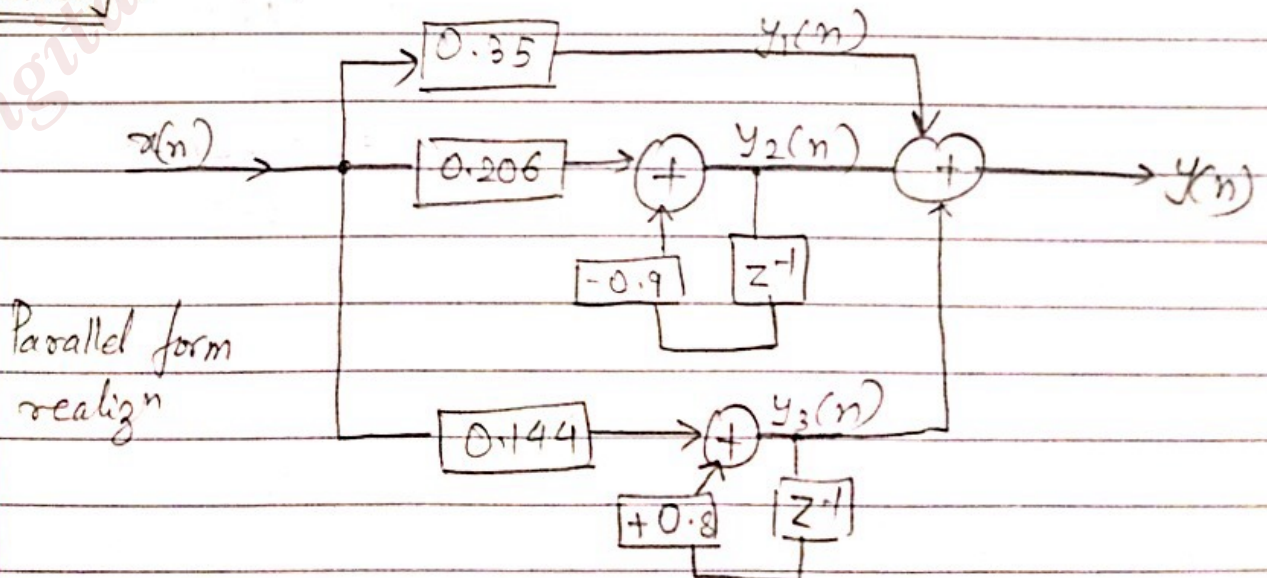 0.35
y₁(n)
x(n)
0.206
+
y₂(n)
+
y(n)
-0.9
z⁻¹
Parallel form
realizⁿ
0.144
+
y₃(n)
+0.8
z⁻¹